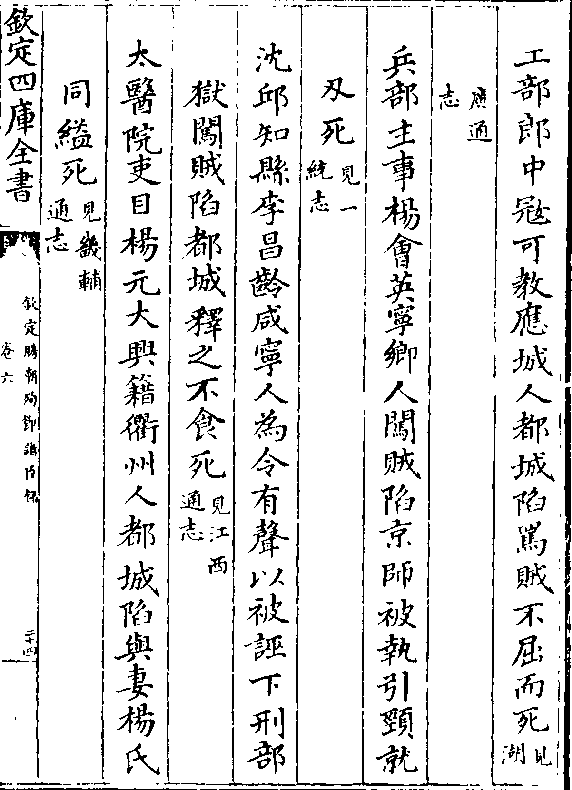 工部郎中冦可教應城人都城陷罵賊不屈而死見湖
廣通志
兵部主事楊會英寧鄉人闖賊陷京師被執引頸就
刄死見一統志
沈邱知縣李昌齡咸寧人為令有聲以被誣下刑部
獄闖賊陷都城釋之不食死見江西通志
太醫院吏目楊元大興籍衢州人都城陷與妻楊氏
同縊死見畿輔通志
欽定四庫全書
欽定勝朝殉節諸臣録
卷六
二十四